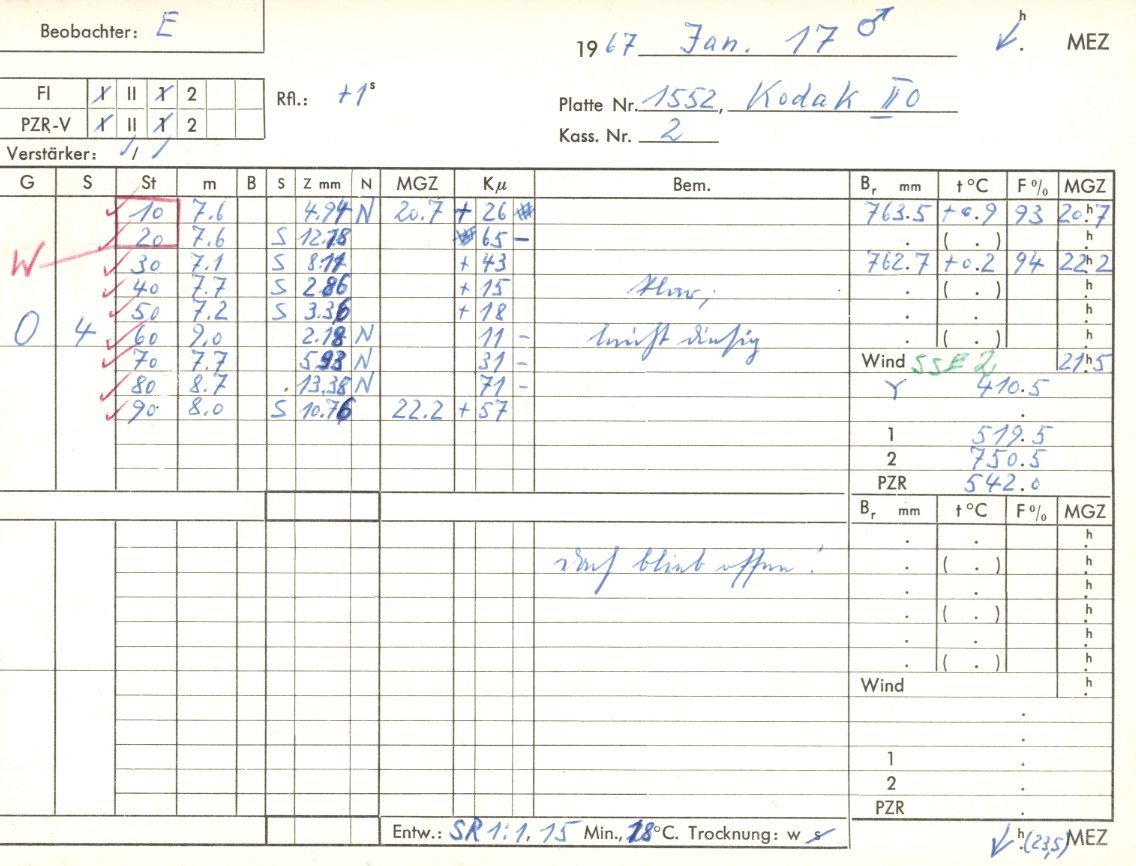 Beobachter: E
1967 Jan. 17 ♂ h . MEZ
FI I II 1 2
PZR-V I II 1 2
Rfl.: +1 s
Platte Nr. 1552, Kodak II O
Kass. Nr. 2
Verstärker: /
G S St m B S Z mm N MGZ Kμ Bem. Br mm t °C F % MGZ
10 7.6 4.94 N 20.7 + 26 763.5 +0.9 93 20.h7
20 7.6 S 12.18 65 - . ( . ) .h
W 30 7.1 S 8.11 + 43 762.7 +0.2 94 22.h2
40 7.7 S 2.86 + 15 klar, . ( . ) .h
50 7.2 S 3.36 + 18 . . .h
O 4 60 9.0 2.18 N 11 - leicht diesig . ( . ) .h
70 7.7 5.93 N 31 - Wind SSE 2 21.h5
80 8.7 13.38 N 71 - γ 410.5
90 8.0 S 10.76 22.2 + 57 .
1 519.5
2 750.5
PZR 542.0
Br mm t °C F % MGZ
. . .h
Dach blieb offen! . ( . ) .h
. . .h
. ( . ) .h
. . .h
. ( . ) .h
Wind .h
.
.
1 .
2 .
PZR .
Entw.: SR 1:1, 15 Min., 18 °C. Trocknung: w s h . (23,5) MEZ